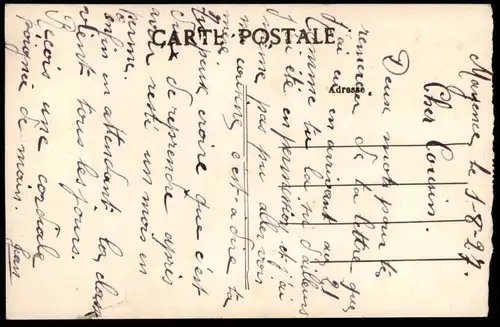 CARTE POSTALE
Adresse
Mayence le 1-8-27.
Cher Cousin.
Deux mots pour te
remercier de ta lettre que
j'ai eu en arrivant au 21
comme tu la su d'ailleurs
j'ai été en permission et j'ai
même pas pu aller voir
ma cousine c'est-à-dire ta
peux croire que c'est
dur de reprendre après
avoir resté un mois en
perme.
enfin en attendant la classe
vient tous les jours.
Reçois une cordiale
poignée de main. Jean